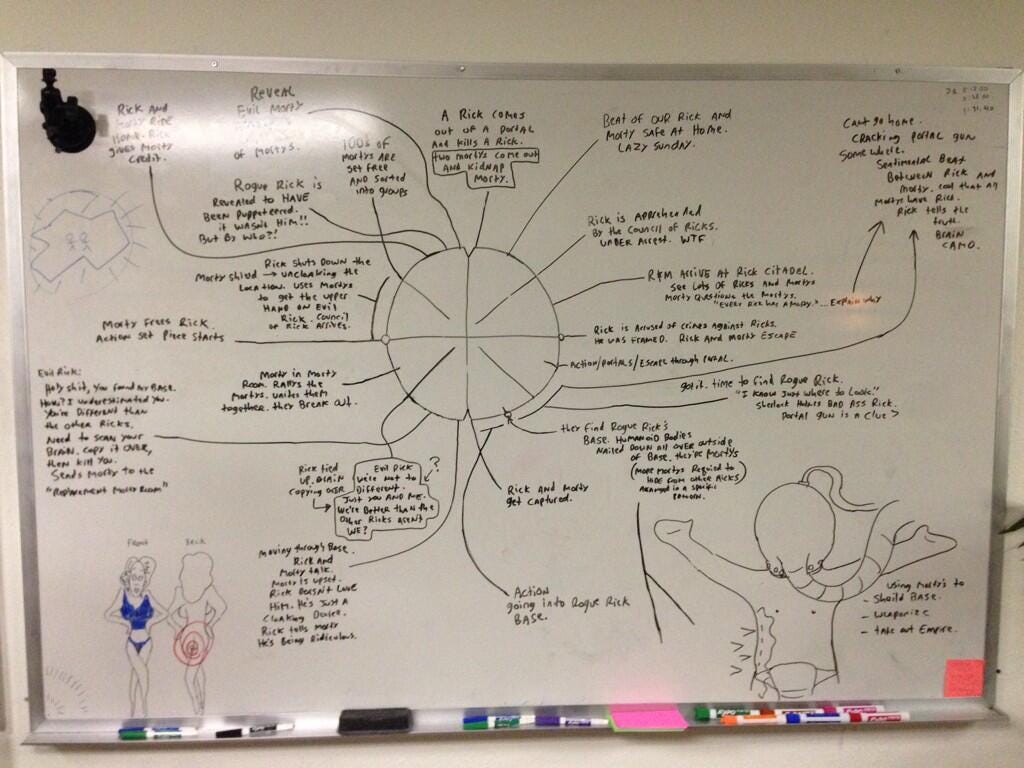 Rick and
Morty Ride
Home. Rick
gives Morty
Credit.
Reveal
Evil Morty
of Mortys.
100s of
Mortys are
set free
and sorted
into groups
A Rick comes
out of a portal
and kills a Rick.
two mortys come out
and kidnap
Morty.
Beat of our Rick and
Morty safe at home.
Lazy Sunday.
Cant go home.
Cracking portal gun
somewhere.
Sentimental beat
between Rick and
Morty. cool that all
Mortys have Rick.
Rick tells the
truth.
Brain
Camo.
Rogue Rick is
revealed to HAVE
been puppeteered.
it wasnt Him!!
But By who?!
Rick is apprehended
by the Council of Ricks.
under arrest. WTF
R&M arrive at Rick Citadel.
See lots of Ricks and Mortys
Morty questions the Mortys.
"Every Rick has a Morty." ...Explain why
Rick is accused of crimes against Ricks.
He was framed. Rick and Morty escape
Action/portals/escape through portal.
got it. time to find Rogue Rick.
"I know just where to look."
Sherlock Holmes Bad Ass Rick.
Portal gun is a clue >
they find Rogue Rick's
Base. Humanoid bodies
nailed down all over outside
of base. they're Mortys
(more Mortys required to
hide from other Ricks)
arranged in a specific
pattern.
Rick and Morty
get captured.
Action
going into Rogue Rick
Base.
Moving through base.
Rick and
Morty talk.
Morty is upset.
Rick doesn't love
him. He's just a
cloaking device.
Rick tells Morty
He's being ridiculous.
Rick tied
up. Brain
copying over
Evil Rick
we're not so
different.
Just you and me.
We're better than the
other Ricks arent
we?
?
Evil Rick:
Holy shit, you found my base.
How? I underestimated you.
You're different than
the other Ricks.
Need to scan your
brain. copy it over,
then kill you.
Sends Morty to the
"Replacement Morty Room"
Morty in Morty
room. Rallys the
Mortys. unites them
together. they break out.
Morty frees Rick.
Action set piece starts
Morty shield →
Rick shuts down the
uncloaking the
location. uses Mortys
to get the upper
hand on evil
Rick. Council
of Rick arrives.
Front
Back
Using Morty's to
- Sheild Base.
- weaponize
- take out Empire.